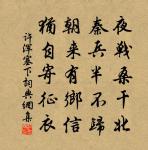 夜戰桑干北
秦兵半不歸
朝來有鄉信
猶自寄征衣
许浑塞下词典網集